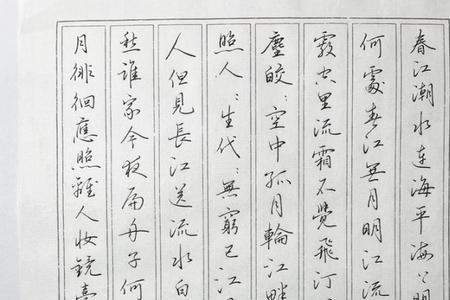 春江潮水連海平海上明
何處春江無月明江流
霰空里流霜不覺飛汀
塵皎々空中孤月輪江畔
照人々生代々無窮已江
人但見長江送流水白
愁誰家今夜扁舟子何
月徘徊應照離人妝鏡臺